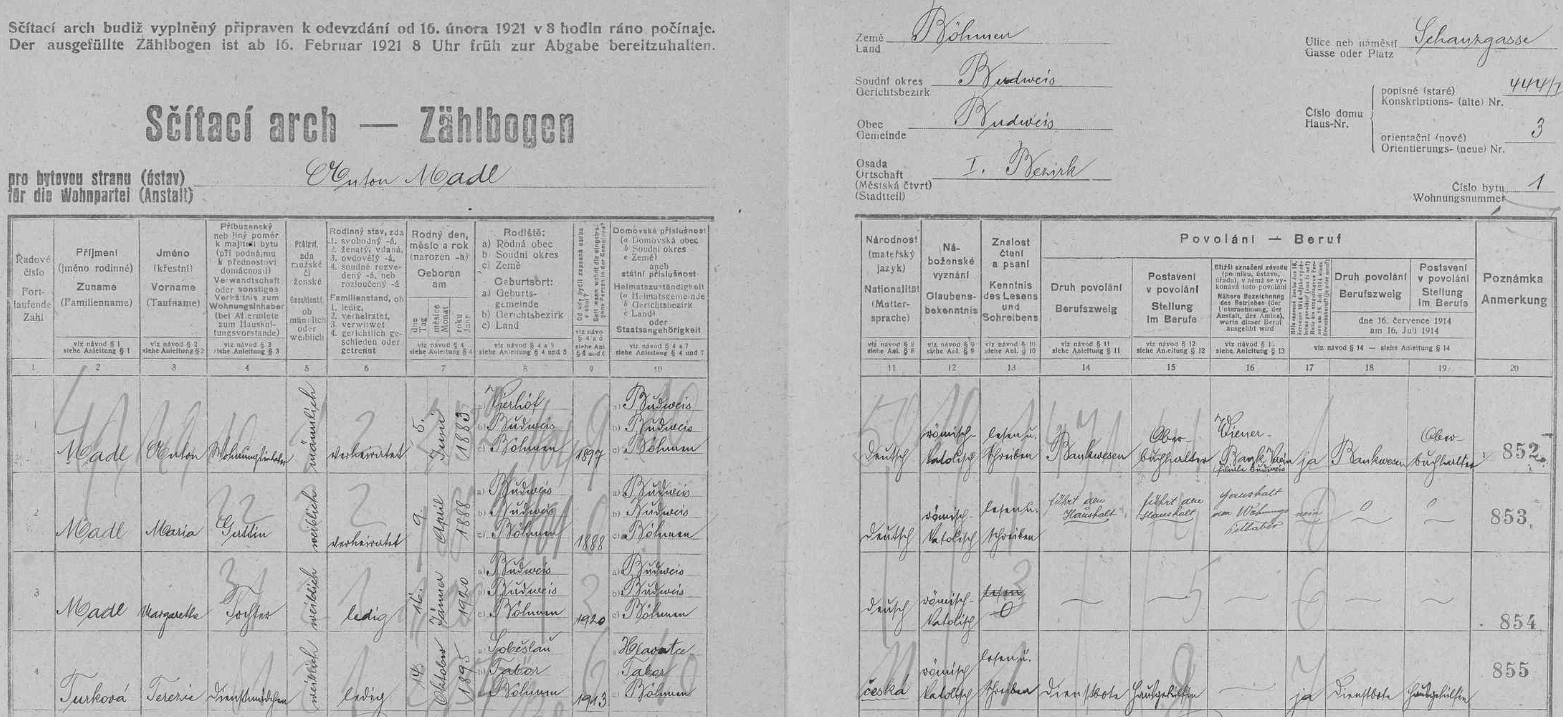 Sčítací arch budiž vyplněný připraven k odevzdání od 16. února 1921 v 8 hodin ráno počínaje.
Der ausgefüllte Zählbogen ist ab 16. Februar 1921 8 Uhr früh zur Abgabe bereitzuhalten.
Sčítací arch — Zählbogen
pro bytovou stranu (ústav)
für die Wohnpartei (Anstalt)
Anton Madl
Země
Land
Böhmen
Soudní okres
Gerichtsbezirk
Budweis
Obec
Gemeinde
Budweis
Osada
Ortschaft
(Městská čtvrť)
(Stadtteil)
I. Bezirk
Ulice neb náměstí
Gasse oder Platz
Schanzgasse
Číslo domu
Haus-Nr.
popisné (staré)
Konskriptions- (alte) Nr.
444/I
orientační (nové)
Orientierungs- (neue) Nr.
3
Číslo bytu
Wohnungsnummer
1
Řadové
číslo
Fort-
laufende
Zahl
Příjmení
(jméno rodinné)
Zuname
(Familienname)
viz návod § 1
siehe Anleitung § 1
Jméno
(křestní)
Vorname
(Taufname)
viz návod § 2
siehe Anleitung § 2
Příbuzenský
neb jiný poměr
k majiteli bytu
(při podnájmu
k přednostovi
domácnosti)
Verwandtschaft
oder sonstiges
Verhältnis zum
Wohnungsinhaber
(bei Aftermiete
zum Haushal-
tungsvorstande)
viz návod § 3
siehe Anleitung § 3
Pohlaví,
zda
mužské
či
ženské
Geschlecht,
ob
männlich
oder
weiblich
Rodinný stav, zda
1. svobodný -á,
2. ženatý, vdaná,
3. ovdovělý -á,
4. soudně rozve-
dený -á, neb
rozloučený -á
Familienstand, ob
1. ledig,
2. verheiratet,
3. verwitwet
4. gerichtlich ge-
schieden oder
getrennt
Rodný den,
měsíc a rok
(narozen -a)
Geboren
am
dne
Tag
měsíce
Monat
roku
Jahr
viz návod § 4
siehe Anleitung § 4
Rodiště:
a) Rodná obec
b) Soudní okres
c) Země
Geburtsort:
a) Geburts-
gemeinde
b) Gerichtsbezirk
c) Land
viz návod § 4 a 5
siehe Anleitung § 4 und 5
Domovská příslušnost
(a Domovská obec
b Soudní okres
c Země)
aneb
státní příslušnost
Heimatszuständigkeit
(a Heimatsgemeinde
b Gerichtsbezirk
c Land)
oder
Staatsangehörigkeit
viz návod § 4 a 7
siehe Anleitung § 4 und 7
Národnost
(mateřský
jazyk)
Nationalität
(Mutter-
sprache)
viz návod § 8
siehe Anl. § 8
Ná-
boženské
vyznání
Glaubens-
bekenntnis
viz návod § 9
siehe Anl. § 9
Znalost
čtení
a psaní
Kenntnis
des Lesens
und
Schreibens
viz návod § 10
siehe Anl. § 10
Povolání — Beruf
Druh povolání
Berufszweig
viz návod § 11
siehe Anleitung § 11
Postavení
v povolání
Stellung
im Berufe
viz návod § 12
siehe Anleitung § 12
viz návod § 13
siehe Anleitung § 13
Druh povolání
Berufszweig
Postavení
v povolání
Stellung
im Berufe
dne 16. července 1914
am 16. Juli 1914
viz návod § 14 — siehe Anleitung § 14
Poznámka
Anmerkung
1 2 3 4 5 6 7 8 9 10 11 12 13 14 15 16 17 18 19 20
1 Madl Anton männlich verheiratet 5. Juni 1883
a) b) Budweis c) Böhmen
1897
a) Budweis b) Budweis c) Böhmen
deutsch
römisch-
katolisch
lesen u.
schreiben
Bankwesen
Ober-
buchhalter
Wiener-
Bank
ja
Bankwesen
Ober-
buchhalter
852
2 Madl Maria Gattin weiblich verheiratet 9. April 1888
a) Budweis b) Budweis c) Böhmen
1888
a) Budweis b) Budweis c) Böhmen
deutsch
römisch-
katolisch
lesen u.
schreiben
führt den
Haushalt
führt den
Haushalt
nein
853
3 Madl Margaretha Tochter weiblich ledig 16. Jänner 1920
a) Budweis b) Budweis c) Böhmen
1920
a) Budweis b) Budweis c) Böhmen
deutsch
römisch-
katolisch
0
854
4 Turková Terezie Dienstmädchen weiblich ledig 14. Oktober 1895
a) Soběslau b) Tabor c) Böhmen
1913
a) Hlavatce b) Tabor c) Böhmen
česká
römisch
katolisch
lesen u.
schreiben
Dienstbote
Hausgehilfin
ja
Dienstbote
Hausgehilfin
855